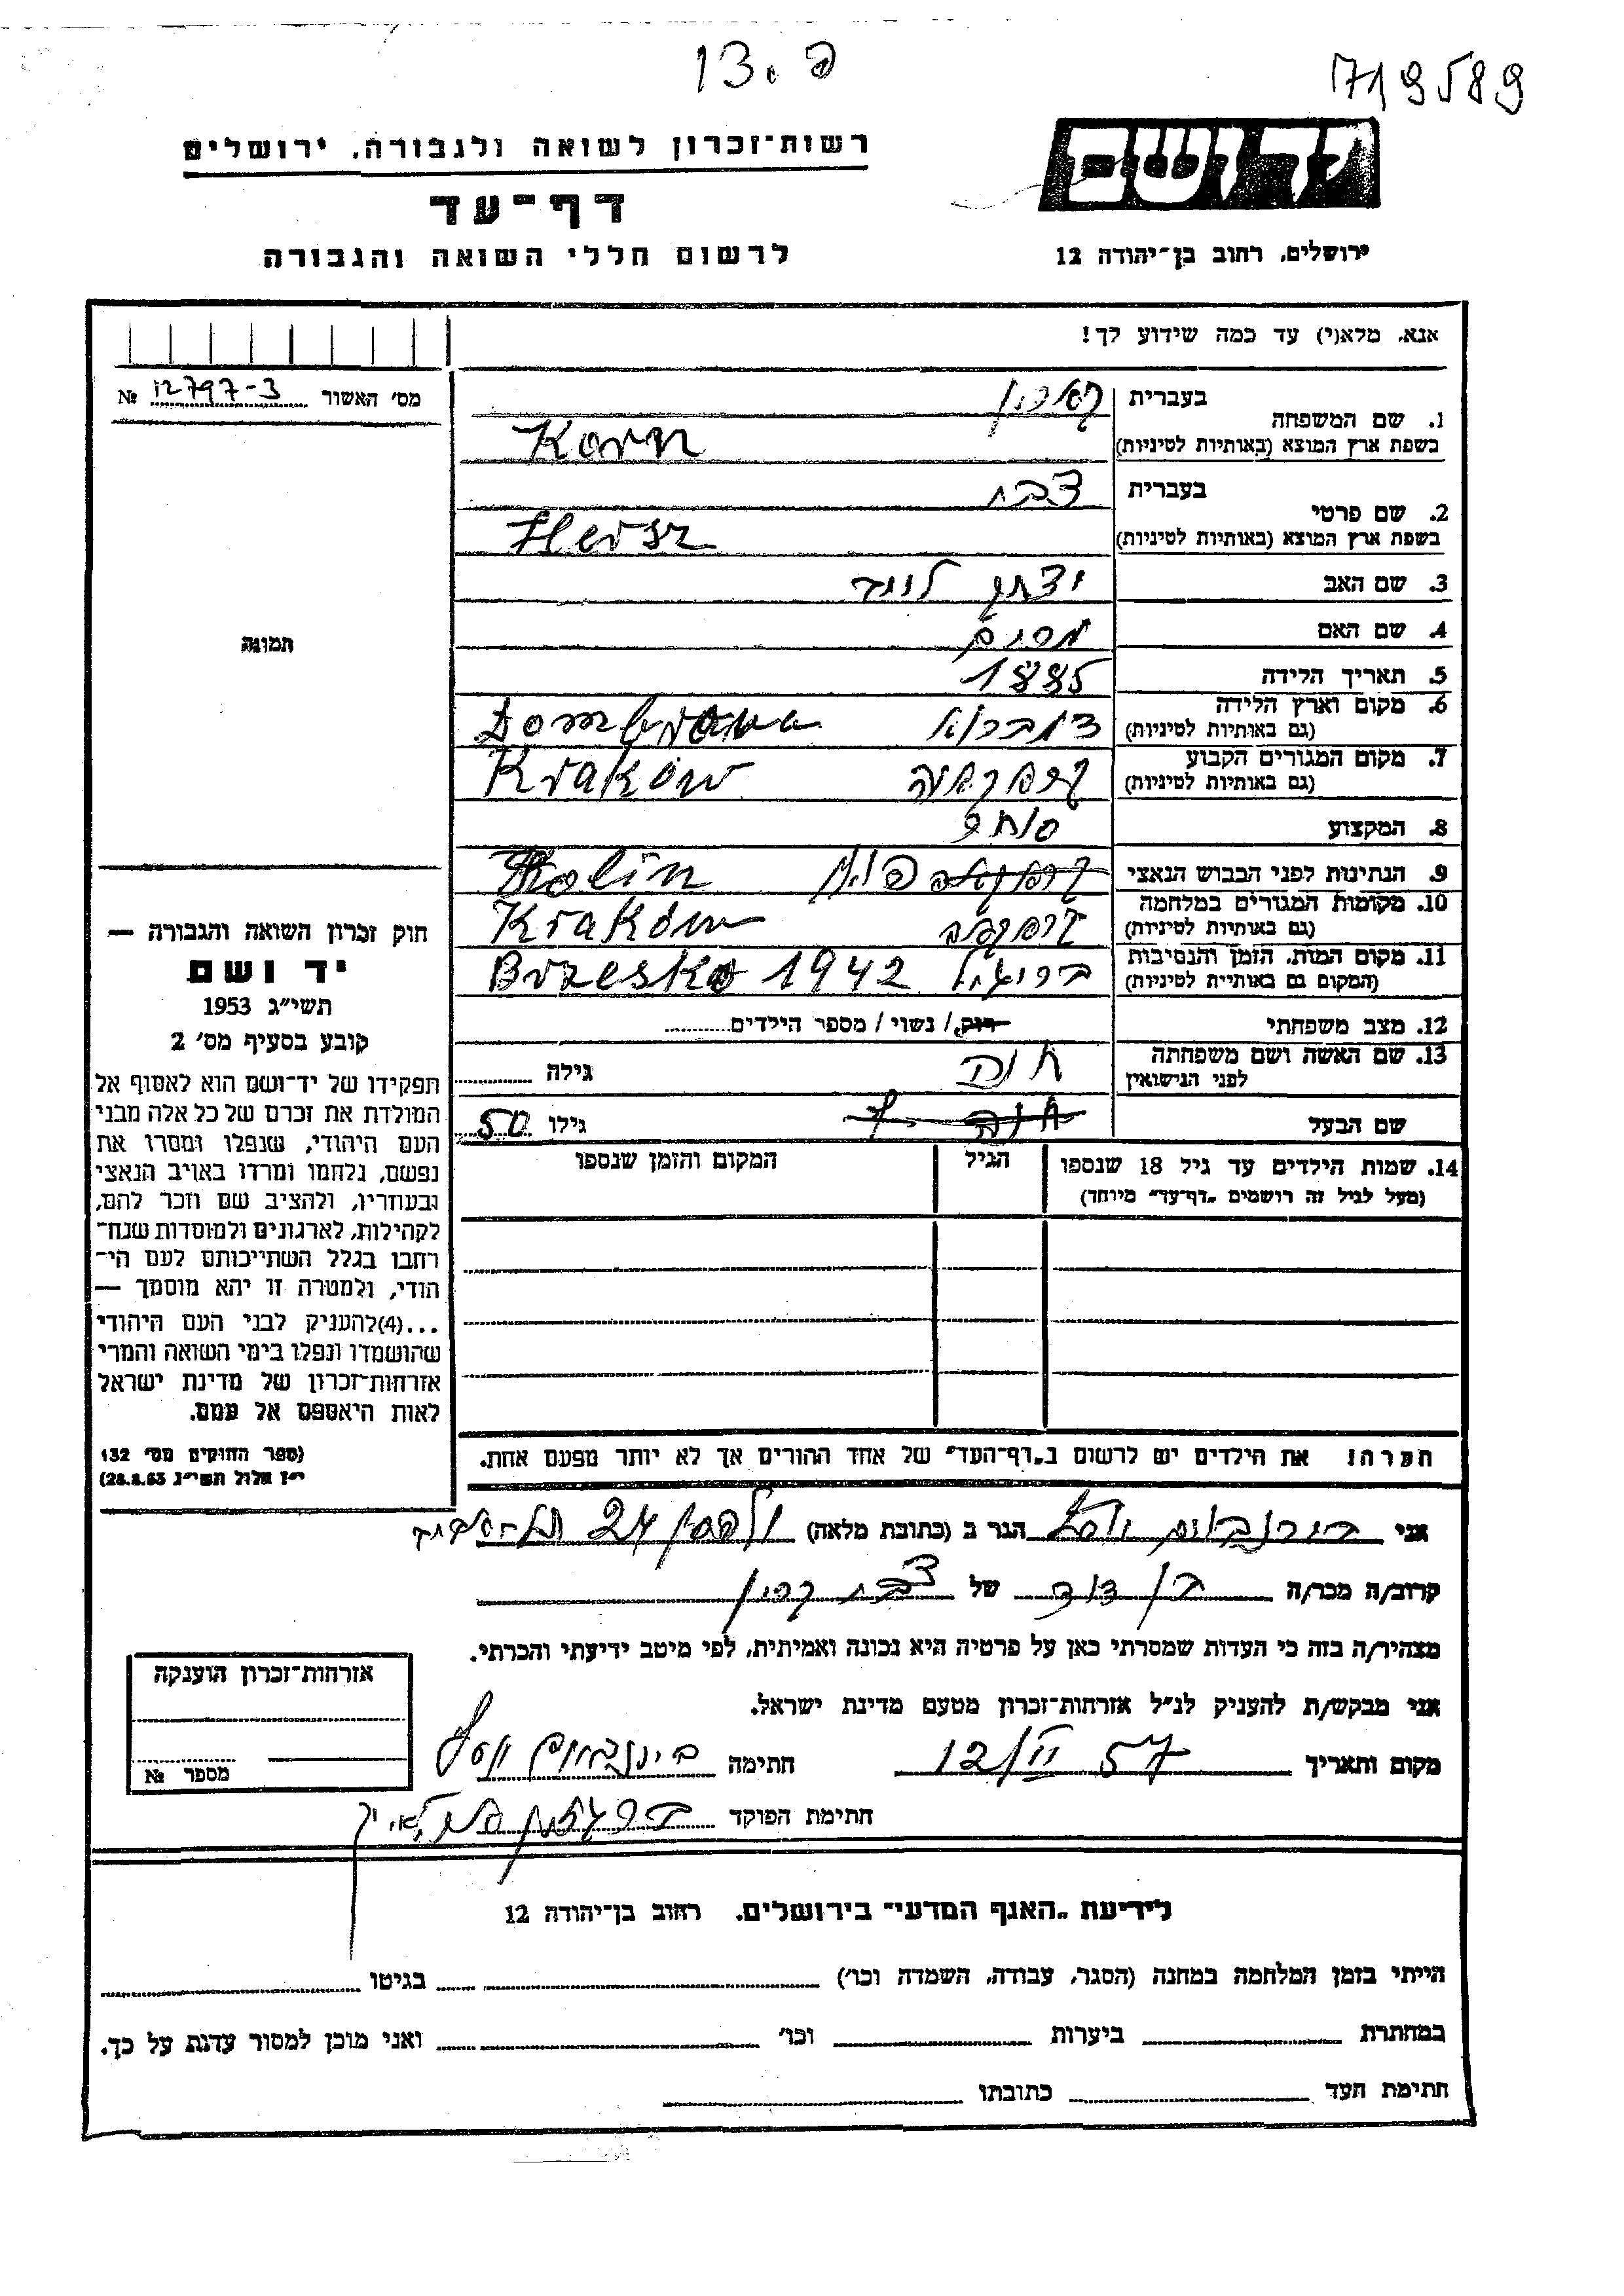 13. פ
719589
יד ושם
רשות־זכרון לשואה ולגבורה, ירושלים
דף־עד
לרשום חללי השואה והגבורה
ירושלים, רחוב בן־יהודה 12
אנא, מלא(י) עד כמה שידוע לך!
מס' האשור 12797-3 №
תמונה
1. שם המשפחה בעברית קארן
בשפת ארץ המוצא (באותיות לטיניות) Korn
2. שם פרטי בעברית צבי
בשפת ארץ המוצא (באותיות לטיניות) Hersz
3. שם האב יצחק
4. שם האם מרים
5. תאריך הלידה 1885
6. מקום וארץ הלידה
(גם באותיות לטיניות) Dombrowa
7. מקום המגורים הקבוע
(גם באותיות לטיניות) Kraków
8. המקצוע סוחר
9. הנתינות לפני הכבוש הנאצי פולין Polin
10. מקומות המגורים במלחמה
(גם באותיות לטיניות) Kraków
11. מקום המות, הזמן והנסיבות
(המקום גם באותיית לטיניות) Brzesko 1942
12. מצב משפחתי רווק/ נשוי / מספר הילדים
13. שם האשה ושם משפחתה
לפני הנישואין חוה גילה
שם הבעל חוה גילו 50
14. שמות הילדים עד גיל 18 שנספו הגיל המקום והזמן שנספו
(מעל לגיל זה רושמים "דף־עד" מיוחד)
חוק זכרון השואה והגבורה —
יד ושם
תשי"ג 1953
קובע בסעיף מס' 2
תפקידו של יד־ושם הוא לאסוף אל
המולדת את זכרם של כל אלה מבני
העם היהודי, שנפלו ומסרו את
נפשם, נלחמו ומרדו באויב הנאצי
ובעוזריו, ולהציב שם וזכר להם,
לקהילות, לארגונים ולמוסדות שנח־
רחבו בגלל השתייכותם לעם הי־
הודי, ולמטרה זו יהא מוסמך —
...(4)להעניק לבני העם היהודי
שהושמדו ונפלו בימי השואה והמרי
אזרחות־זכרון של מדינת ישראל
לאות היאספם אל עמם.
(ספר החוקים מס' 132
י"ז אלול תשי"ג 28.8.53)
הערה! את הילדים יש לרשום ב"דף־העד" של אחד ההורים אך לא יותר מפעם אחת.
אני בירנבוים יוסף הגר ב (כתובת מלאה) 24
קרוב/ה מכר/ה בן דוד של צבי קרן
מצהיר/ה בזה כי העדות שמסרתי כאן על פרטיה היא נכונה ואמיתית, לפי מיטב ידיעתי והכרתי.
אני מבקש/ת להעניק לנ"ל אזרחות־זכרון מטעם מדינת ישראל.
מקום ותאריך 12/II 57 חתימה בירנבוים יוסף
חתימת הפוקד
אזרחות־זכרון הוענקה
מספר №
לידיעת "האגף המדעי" בירושלים, רחוב בן־יהודה 12
הייתי בזמן המלחמה במחנה (הסגר, עבודה, השמדה וכו') בגיטו
במחתרת ביערות וכו' ואני מוכן למסור עדות על כך.
חתימת העד כתובתו